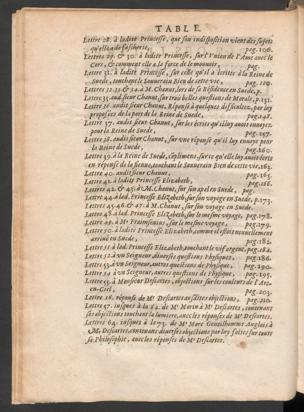 TABLE.
Lettre 28. à ladite Princesse, que son indisposition vient des sujets
qu'elle a de fascherie, pag. 106.
Lettre 29. & 30. à ladite Princesse, sur l'Vnion de l'Ame avec le
Cors, & comment elle a la force de le mouuoir, pag.
Lettre 31. à ladite Princesse, sur celle qu'il a écrite à la Reine de
Suede, touchant le Souuerain Bien de cette vie, pag. 120.
Lettre 32. 33 & 34. à M. Chanut, lors de sa Residence en Suede, p.
Lettre 35. aud. sieur Chanut, sur trois belles questions de Morale, p. 132.
Lettre 36. audit sieur Chanut, Réponse à quelques difficultez, par luy
proposées de la part de la Reine de Suede, pag. 148.
Lettre 37. audit sieur Chanut, sur les écrits qu'il luy auoit enuoyez
pour la Reine de Suede, pag. 157.
Lettre 38. audit sieur Chanut, sur vne réponse qu'il luy enuoye pour
la Reine de Suede, pag. 160.
Lettre 39. à la Reine de Suede, complimens, sur ce qu'elle luy auoit écrit
en réponse de la sienne, touchant le Souuerain Bien de cette vie, 163.
Lettre 40. audit sieur Chanut, pag. 165.
Lettre 41. à ladite Princesse Elizabeth, pag. 166.
Lettre 42. & 43. à M. Chanut, sur son apel en Suede, pag.
Lettre 44. à lad. Princesse Elizabeth, sur son voyage en Suede, p. 173.
Lettre 45. 46. & 47. à M. Chanut, sur son voyage en Suede, pag.
Lettre 48. à lad. Princesse Elizabeth, sur le mesme voyage, pag. 178.
Lettre 49. à Mr Frainshemius, sur le mesme voyage, pag. 179.
Lettre 50. à ladite Princesse Elizabeth, comme estant nouuellement
arriué en Suede, pag. 182.
Lettre 51. à lad. Princesse Elizabeth, touchant le vif argent, pag. 184.
Lettre 52. à vn Seigneur, diuerses questions Physiques, pag. 186.
Lettre 53. à vn Seigneur, autres questions de Physique, pag. 190.
Lettre 54. à vn Seigneur, autres questions de Physique, pag. 195.
Lettre 55. à Monsieur Descartes, objections sur les couleurs de l'Arc-
en-Ciel, pag. 203.
Lettre 56. réponse de Mr Descartes ausdites objections, pag. 210.
Lettre 57. iusques à la 62. de Mr Morin à Mr Descartes, contenant
ses objections touchant la lumiere, auec les réponses de Mr Descartes.
Lettre 64. iusques à la 73. de Mr More Gentilhomme Anglois à
M. Descartes, contenant diuerses objections par luy faites sur toute
sa Philosophie, auec les réponses de Mr Descartes.